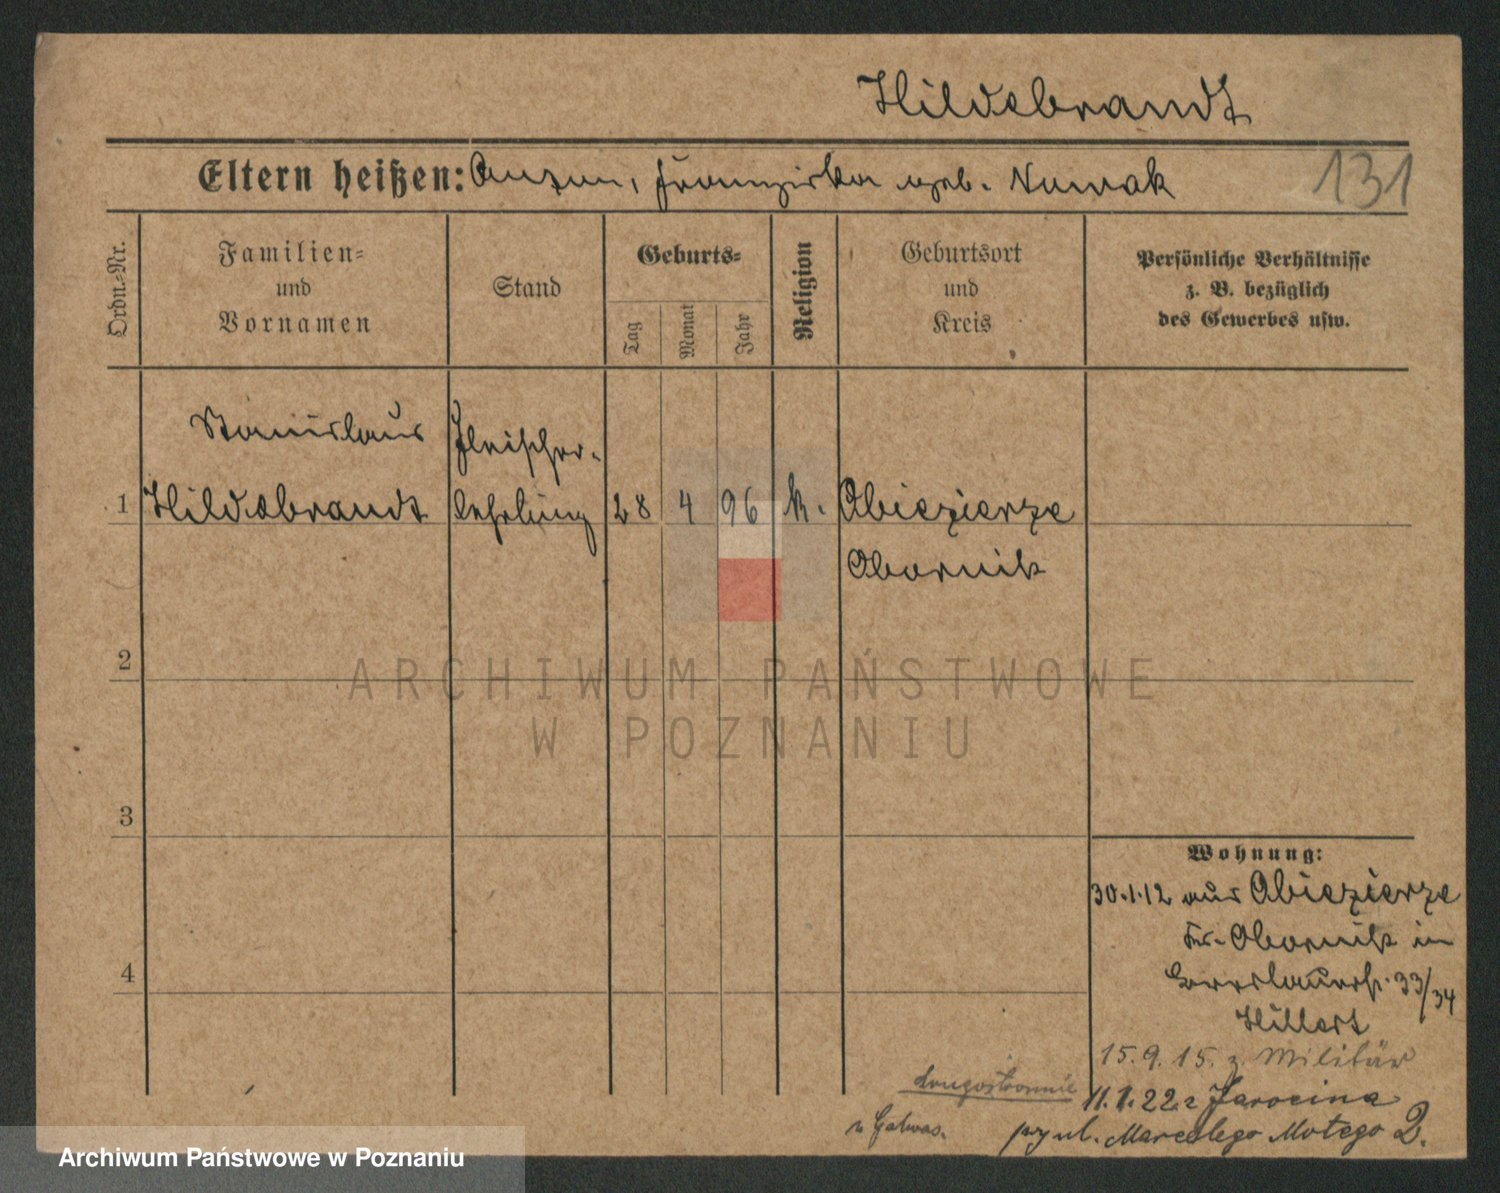 Hildebrandt
Eltern heißen: Anton, Franziska geb. Nowak
131
Ordn.-Nr.
Familien-
und
Vornamen
Stand
Geburts-
Tag
Monat
Jahr
Religion
Geburtsort
und
Kreis
Persönliche Verhältnisse
z. B. bezüglich
des Gewerbes usw.
Stanislaus Fleischer-
1 Hildebrandt lehrling 28 4 96 k. Obiezierze
Obornik
2
3
4
ARCHIWUM PAŃSTWOWE
W POZNANIU
Wohnung:
30.1.12 aus Obiezierze
Kr. Obornik in
33/34
Hillert
15.9.15. z. Militär
drugostronnie 11.1.22 z Jarocina
u Galwas. przy ul. Marcelego Motego 2.
Archiwum Państwowe w Poznaniu